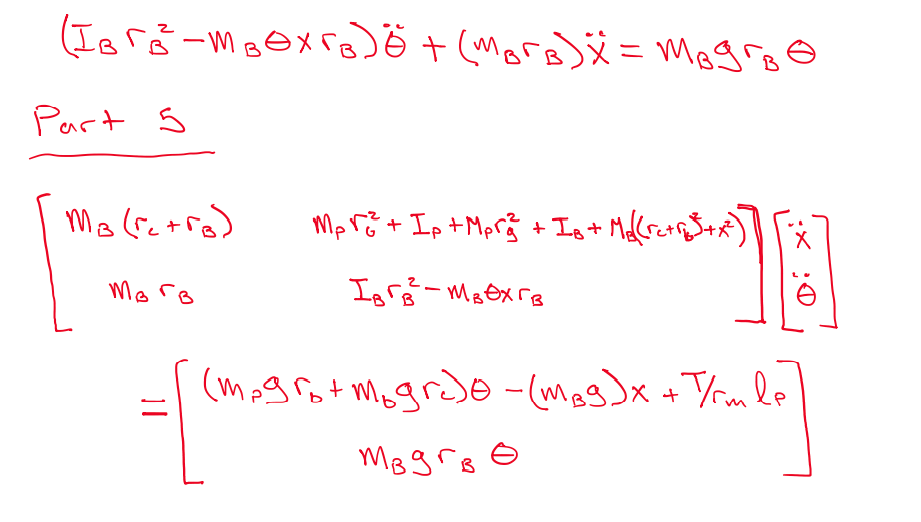 (I_B r_B² - m_B θ x r_B) θ̈ + (m_B r_B) ẍ = m_B g r_B θ
Part 5
[ m_B (r_c + r_B)   m_p r_G² + I_p + M_p r_g² + I_B + M_B((r_c + r_b)² + x²) ] [ ẍ
m_B r_B   I_B r_B² - m_B θ x r_B ] θ̈ ]
= [ (m_p g r_b + m_b g r_c) θ - (m_B g) x + T/r_m l_p
m_B g r_B θ ]